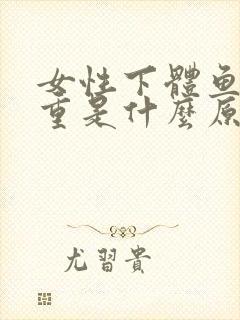 女性下體魚
重是什麼原
尤習貴